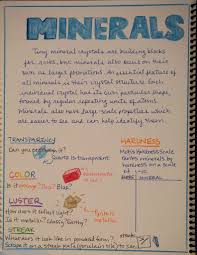 MINERALS
Tiny mineral crystals are building blocks
for rocks, but minerals also exist on their
own as large formations. An essential feature of
all minerals is their crystal structure. Each
individual crystal has its own particular shape,
formed by regular repeating units of atoms.
Minerals also have large scale properties which
are easier to see and can help identify them.
TRANSPARENCY
Can you see
Quartz is transparent
HARDNESS
Mohs Hardness Scale
minerals by
hardness on a scale
of 1-10
MINERAL
COLOR
Is it orange? Red? Blue?
LUSTER
How does it reflect light?
Is it metallic? Glassy? Earthy?
metallic
STREAK
What does it look like in powdered form?
Scrape it on a streak plate (porcelain tile) to see!
streak